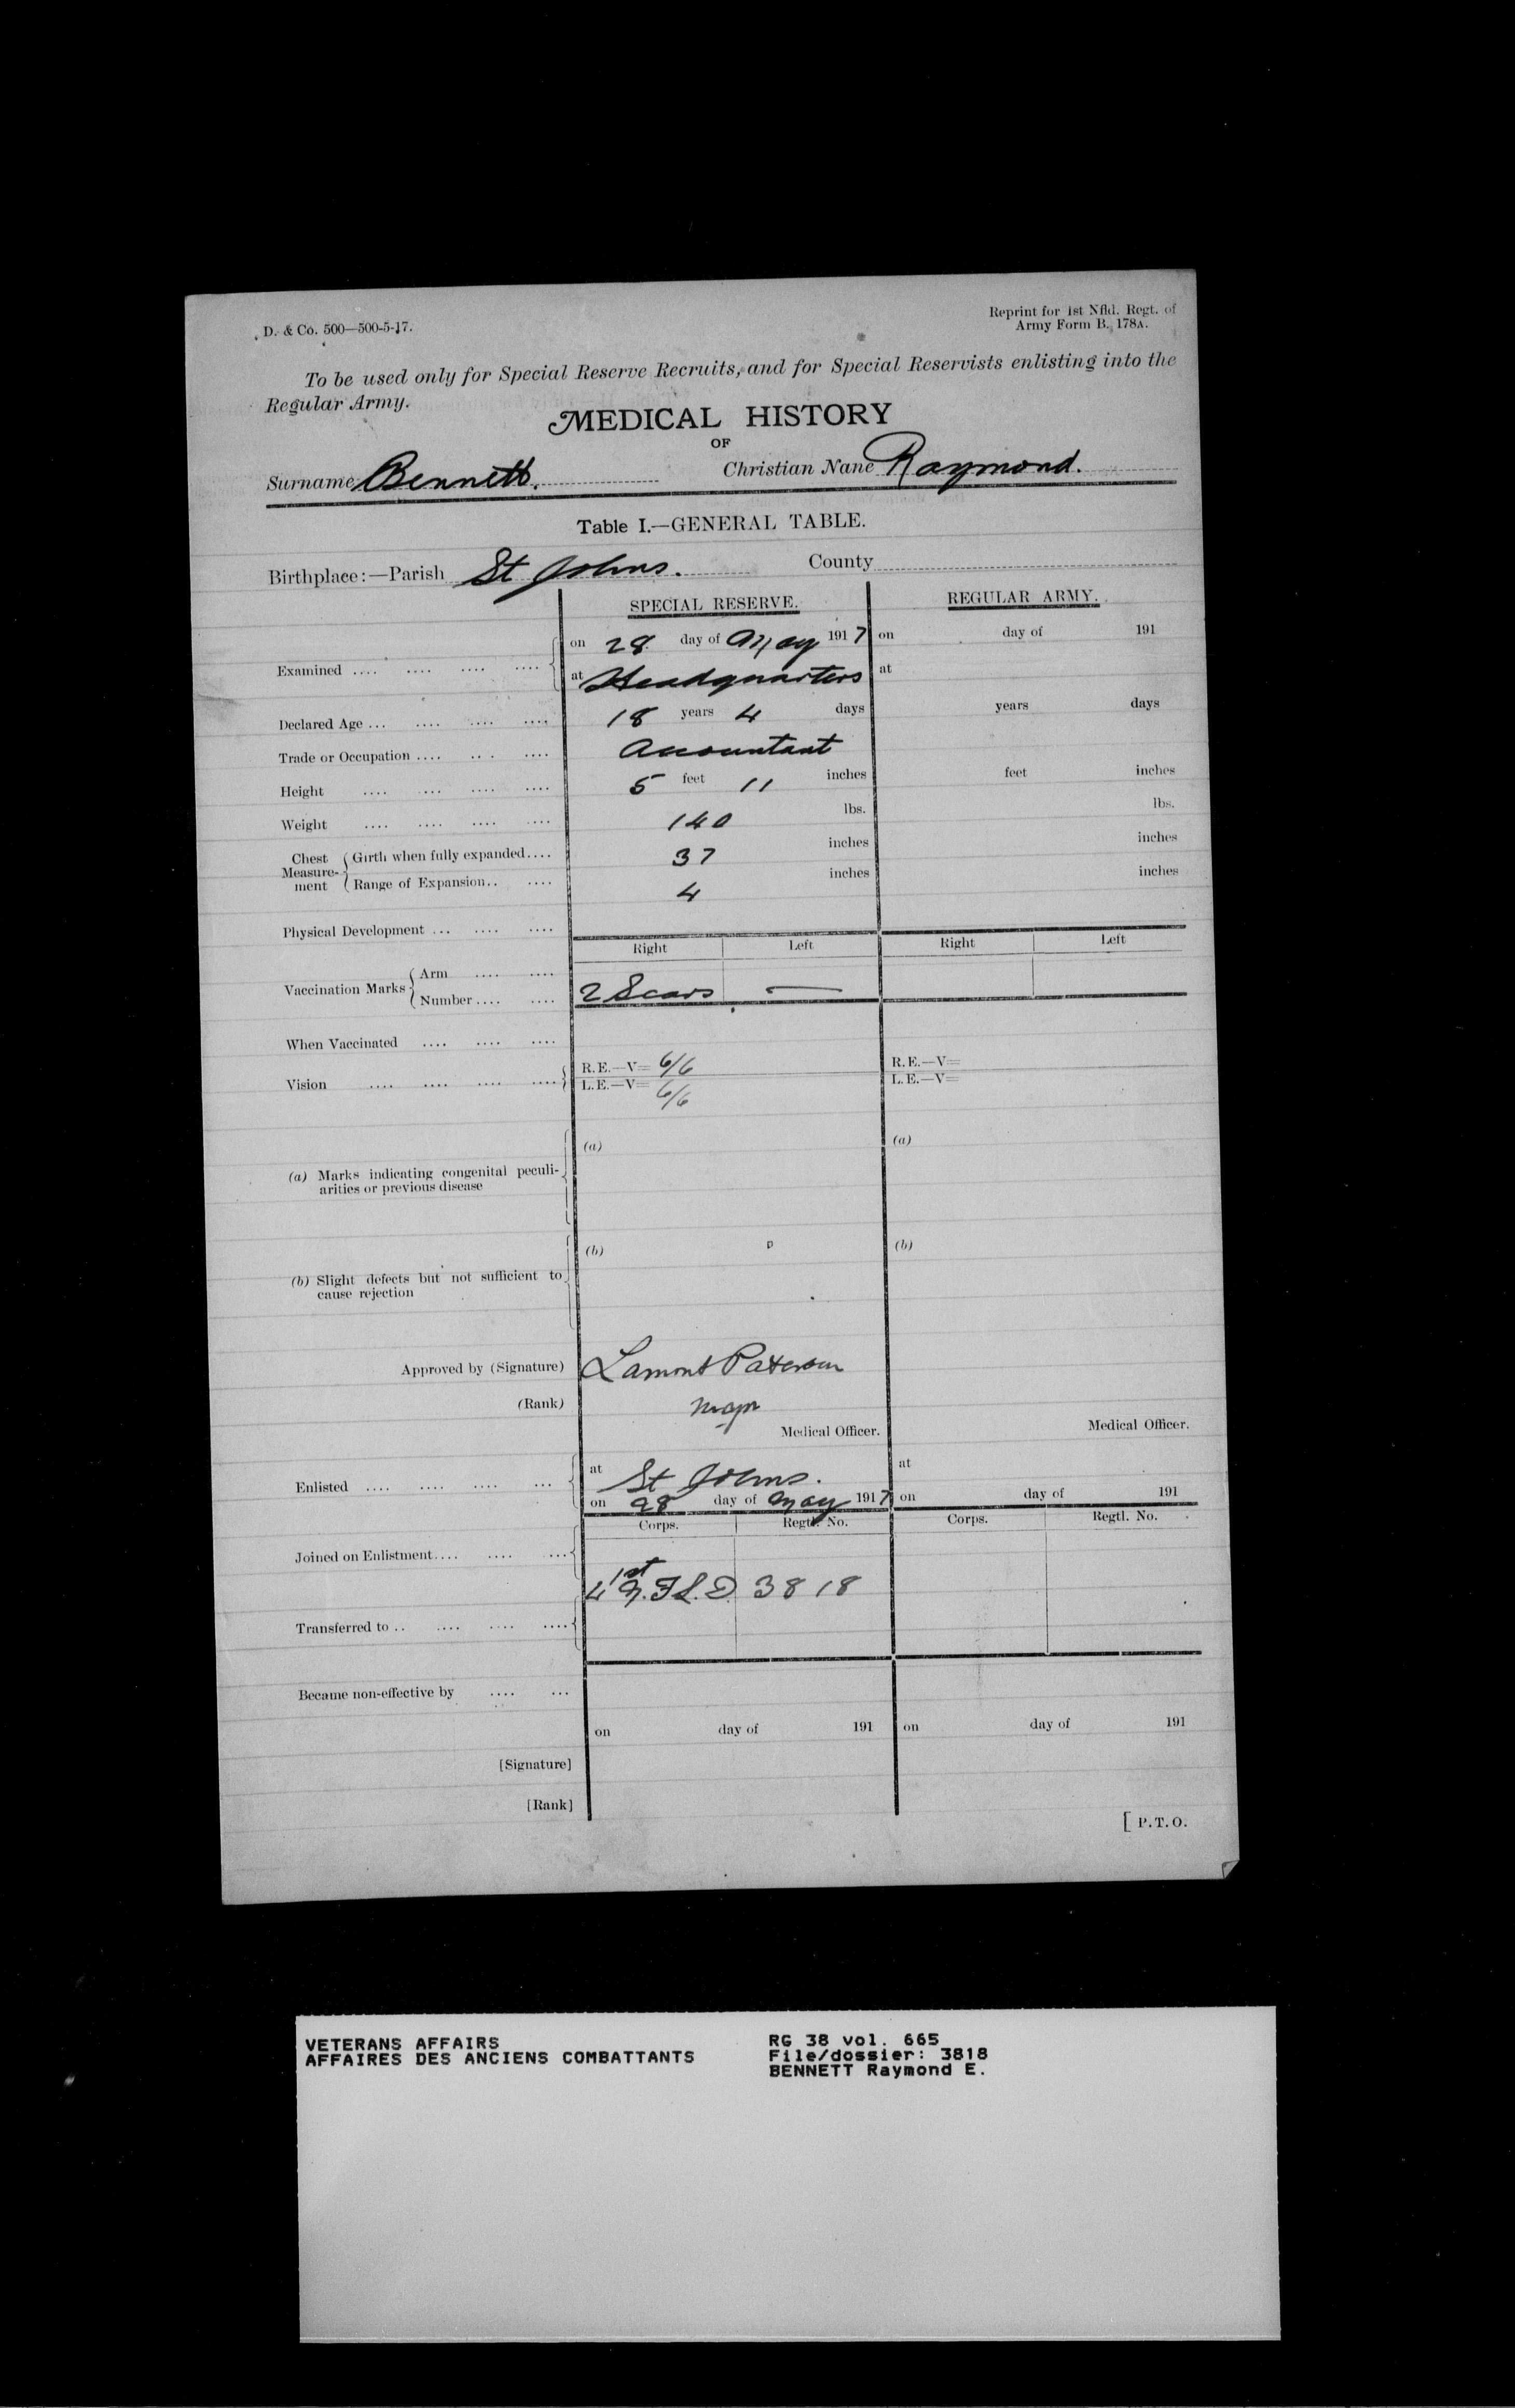 D. & Co. 500—500-5-17.
Reprint for 1st Nfld. Regt. of
Army Form B. 178A.
To be used only for Special Reserve Recruits, and for Special Reservists enlisting into the
Regular Army.
MEDICAL HISTORY
OF
Surname Bennett. Christian Nane Raymond.
Table I.—GENERAL TABLE.
Birthplace:—Parish St Johns. County
SPECIAL RESERVE. REGULAR ARMY.
on 28 day of May 1917 on day of 191
Examined .... .... .... ....
at Headquarters at
Declared Age ... .... .... .... 18 years 4 days years days
Trade or Occupation .... ... . .... Accountant
Height .... .... .... .... 5 feet 11 inches feet inches
Weight .... .... .... .... 140 lbs. lbs.
Chest Measure-ment Girth when fully expanded.... 37 inches inches
Range of Expansion.. .... 4 inches inches
Physical Development ... .... ....
Right Left Right Left
Vaccination Marks Arm .... ....
Number .... .... 2 Scars —
When Vaccinated .... .... ....
Vision .... .... .... .... R.E.—V= 6/6 R.E.—V=
L.E.—V= 6/6 L.E.—V=
(a) (a)
(a) Marks indicating congenital peculi-
arities or previous disease
(b) (b)
(b) Slight defects but not sufficient to
cause rejection
Approved by (Signature) Lamont Paterson
(Rank) Majr
Medical Officer. Medical Officer.
Enlisted .... .... .... ... at St Johns. at
on 28 day of May 1917 on day of 191
Corps. Regtl. No. Corps. Regtl. No.
Joined on Enlistment.... .... ...
1st N.F.L.D. 3818
Transferred to .. .... .... ....
Became non-effective by .... ...
on day of 191 on day of 191
[Signature]
[Rank]
[ P.T.O.
VETERANS AFFAIRS RG 38 vol. 665
AFFAIRES DES ANCIENS COMBATTANTS File/dossier: 3818
BENNETT Raymond E.